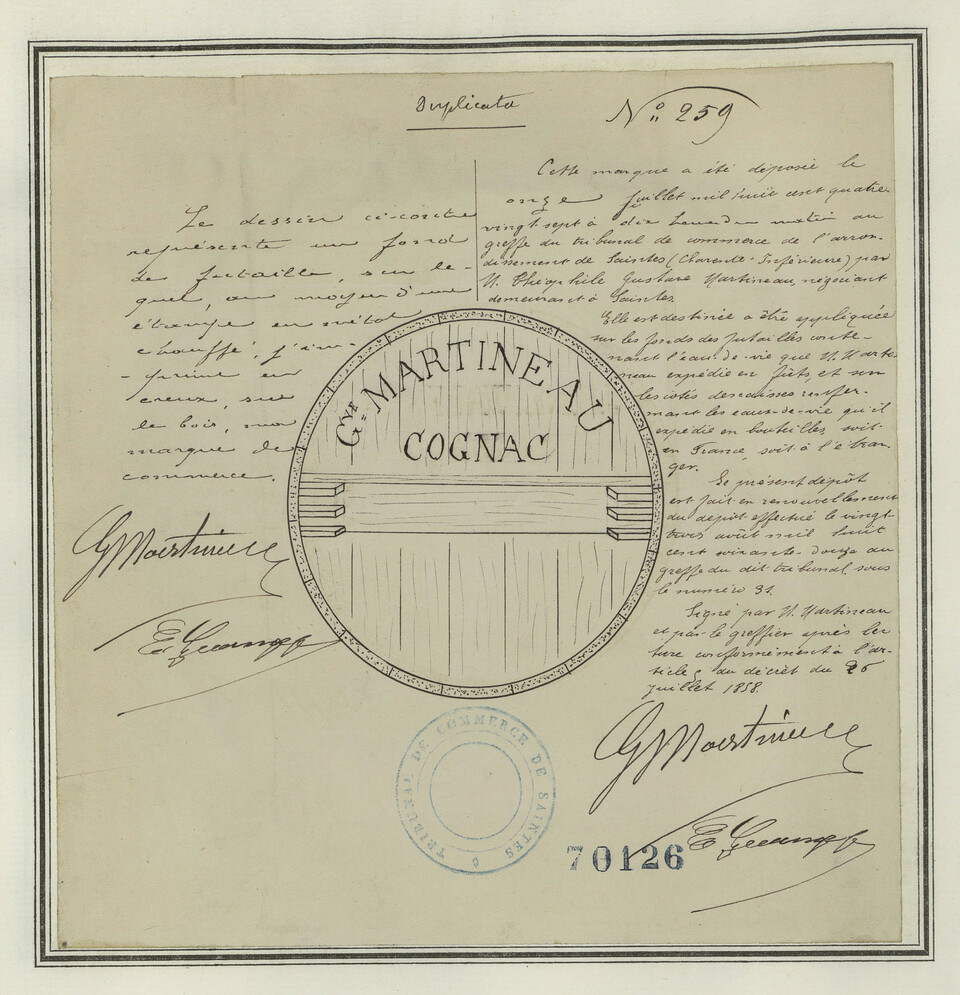 Duplicata
N° 259
Le dessin ci-contre
représente un fond
de futaille, sur le-
quel, au moyen d'une
étampe en métal
chauffé, j'im-
-prime en
creux, sur
le bois, ma
marque de
commerce.
GMartineau
Cette marque a été déposée le
onze Juillet mil huit cent quatre
vingt sept à dix heures du matin au
greffe du tribunal de commerce de l'arron-
dissement de Saintes (Charente-Inférieure) par
M. Théophile Gustave Martineau, négociant
demeurant à Saintes.
Elle est destinée à être appliquée
sur les fonds des futailles conte-
nant l'eau-de-vie que M. Marti-
neau expédie en fûts, et sur
les cotés des caisses renfer-
mant les eaux-de-vie qu'il
expédie en bouteilles, soit
en France, soit à l'étran-
ger.
Le présent dépôt
est fait en renouvellement
du dépôt effectué le vingt-
trois août mil huit
cent soixante-douze au
greffe du dit tribunal sous
le numéro 31.
Signé par M. Martineau
et par le greffier après lec
ture conformément à l'ar-
ticle du décrèt du 26
juillet 1858.
GMartineau
Gve MARTINEAU
COGNAC
TRIBUNAL DE COMMERCE DE SAINTES
70126